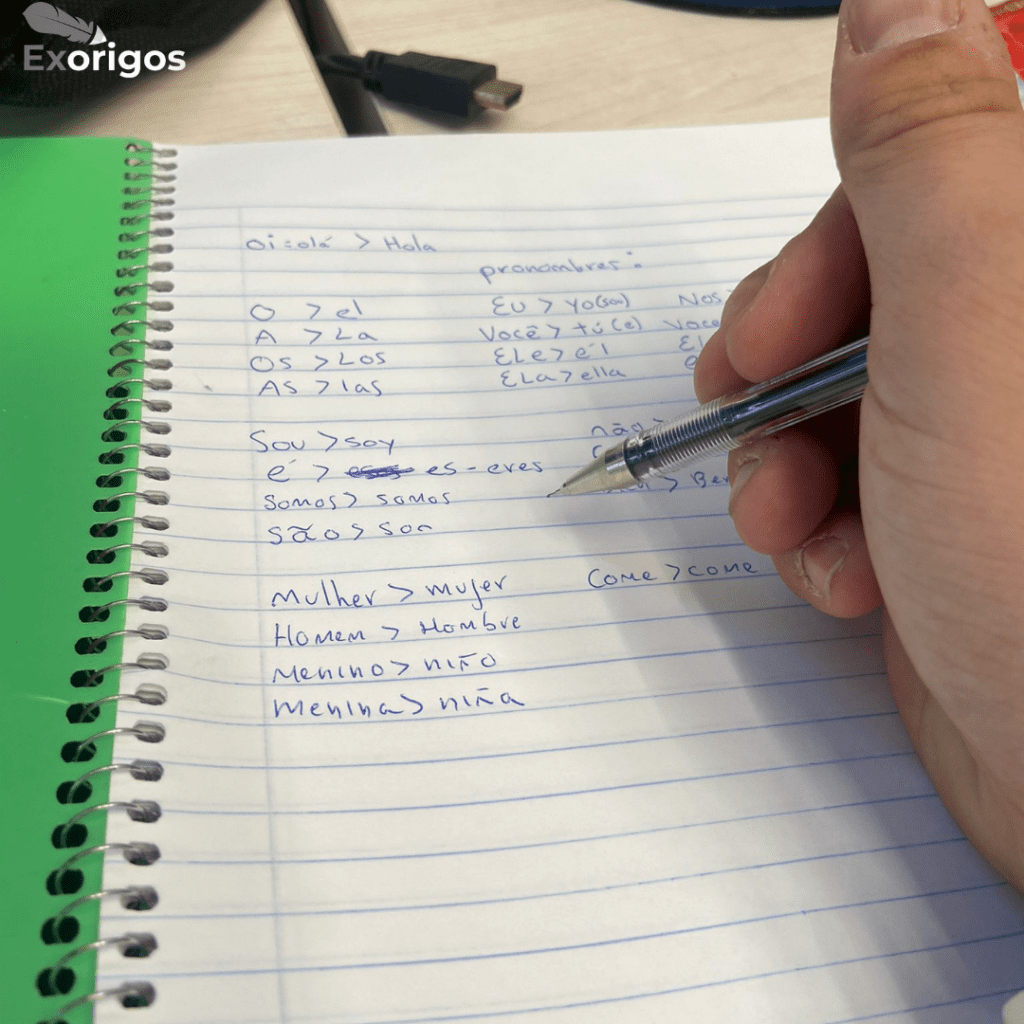 Exorigos
oi=olá > Hola
pronombres:
O > el
A > La
Os > Los
As > las
Eu > yo(soy)
Você > tú (e)
Ele > él
Ela > ella
Nos
Voce
El
Sou > soy
é > es-eres
somos > somos
são > son
não
> Ber
Mulher > mujer
Homem > Hombre
Menino > niño
Menina > niña
Come > come